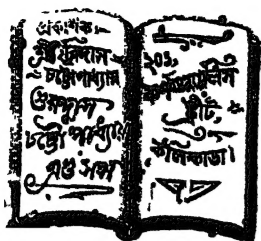 প্রকাশক—
শ্রীহরিদাস
চট্টোপাধ্যায়
গুরুদাস
চট্টোপাধ্যায়
এণ্ড সন্স
২০১,
কর্ণওয়ালিস
ষ্ট্রীট,
কলিকাতা।